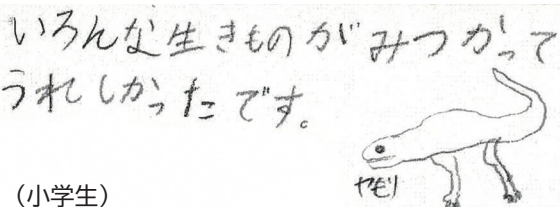 いろんな生きものがみつかって
うれしかったです。
ヤモリ
(小学生)